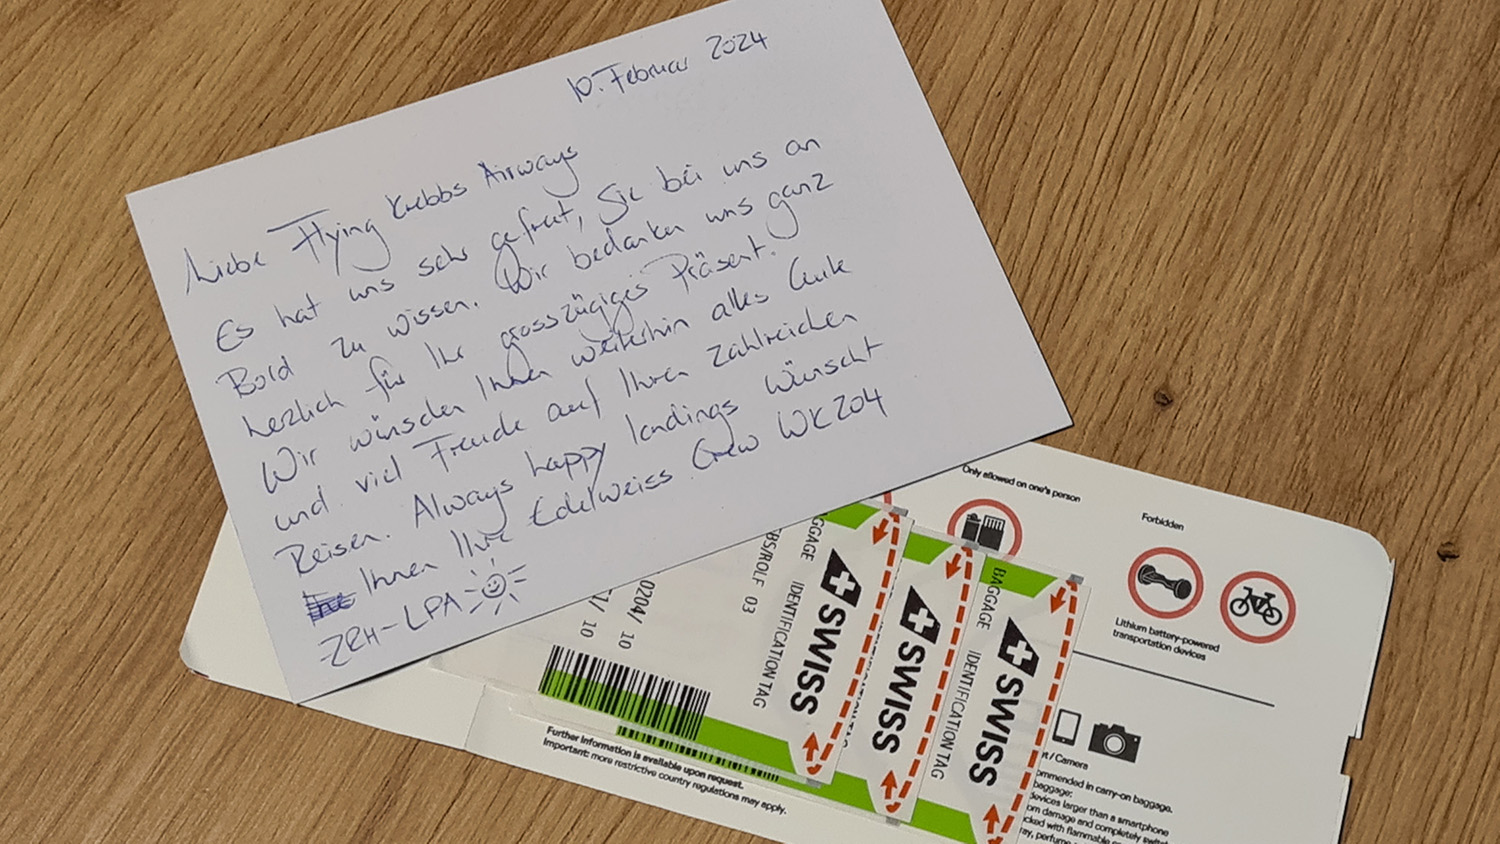 10. Februar 2024
Liebe Flying Krebbs Airways
Es hat uns sehr gefreut, Sie bei uns an
Bord zu wissen. Wir bedanken uns ganz
herzlich für Ihr grosszügiges Präsent.
Wir wünschen Ihnen weiterhin alles Gute
und viel Freude auf Ihren zahlreichen
Reisen. Always happy landings wünscht
Ihnen Ihre Edelweiss Crew WK204
ZRH-LPA
Only allowed on one's person
Forbidden
Lithium battery-powered
transportation devices
BS/ROLF 03
0204/ 10
1/ 10
GGAGE IDENTIFICATION TAG
SWISS
SWISS
BAGGAGE IDENTIFICATION TAG
SWISS
Further information is available upon request.
Important: more restrictive country regulations may apply.
et / Camera
ommended in carry-on baggage.
baggage:
devices larger than a smartphone
om damage and completely swit
cked with flammable
ray, perfume